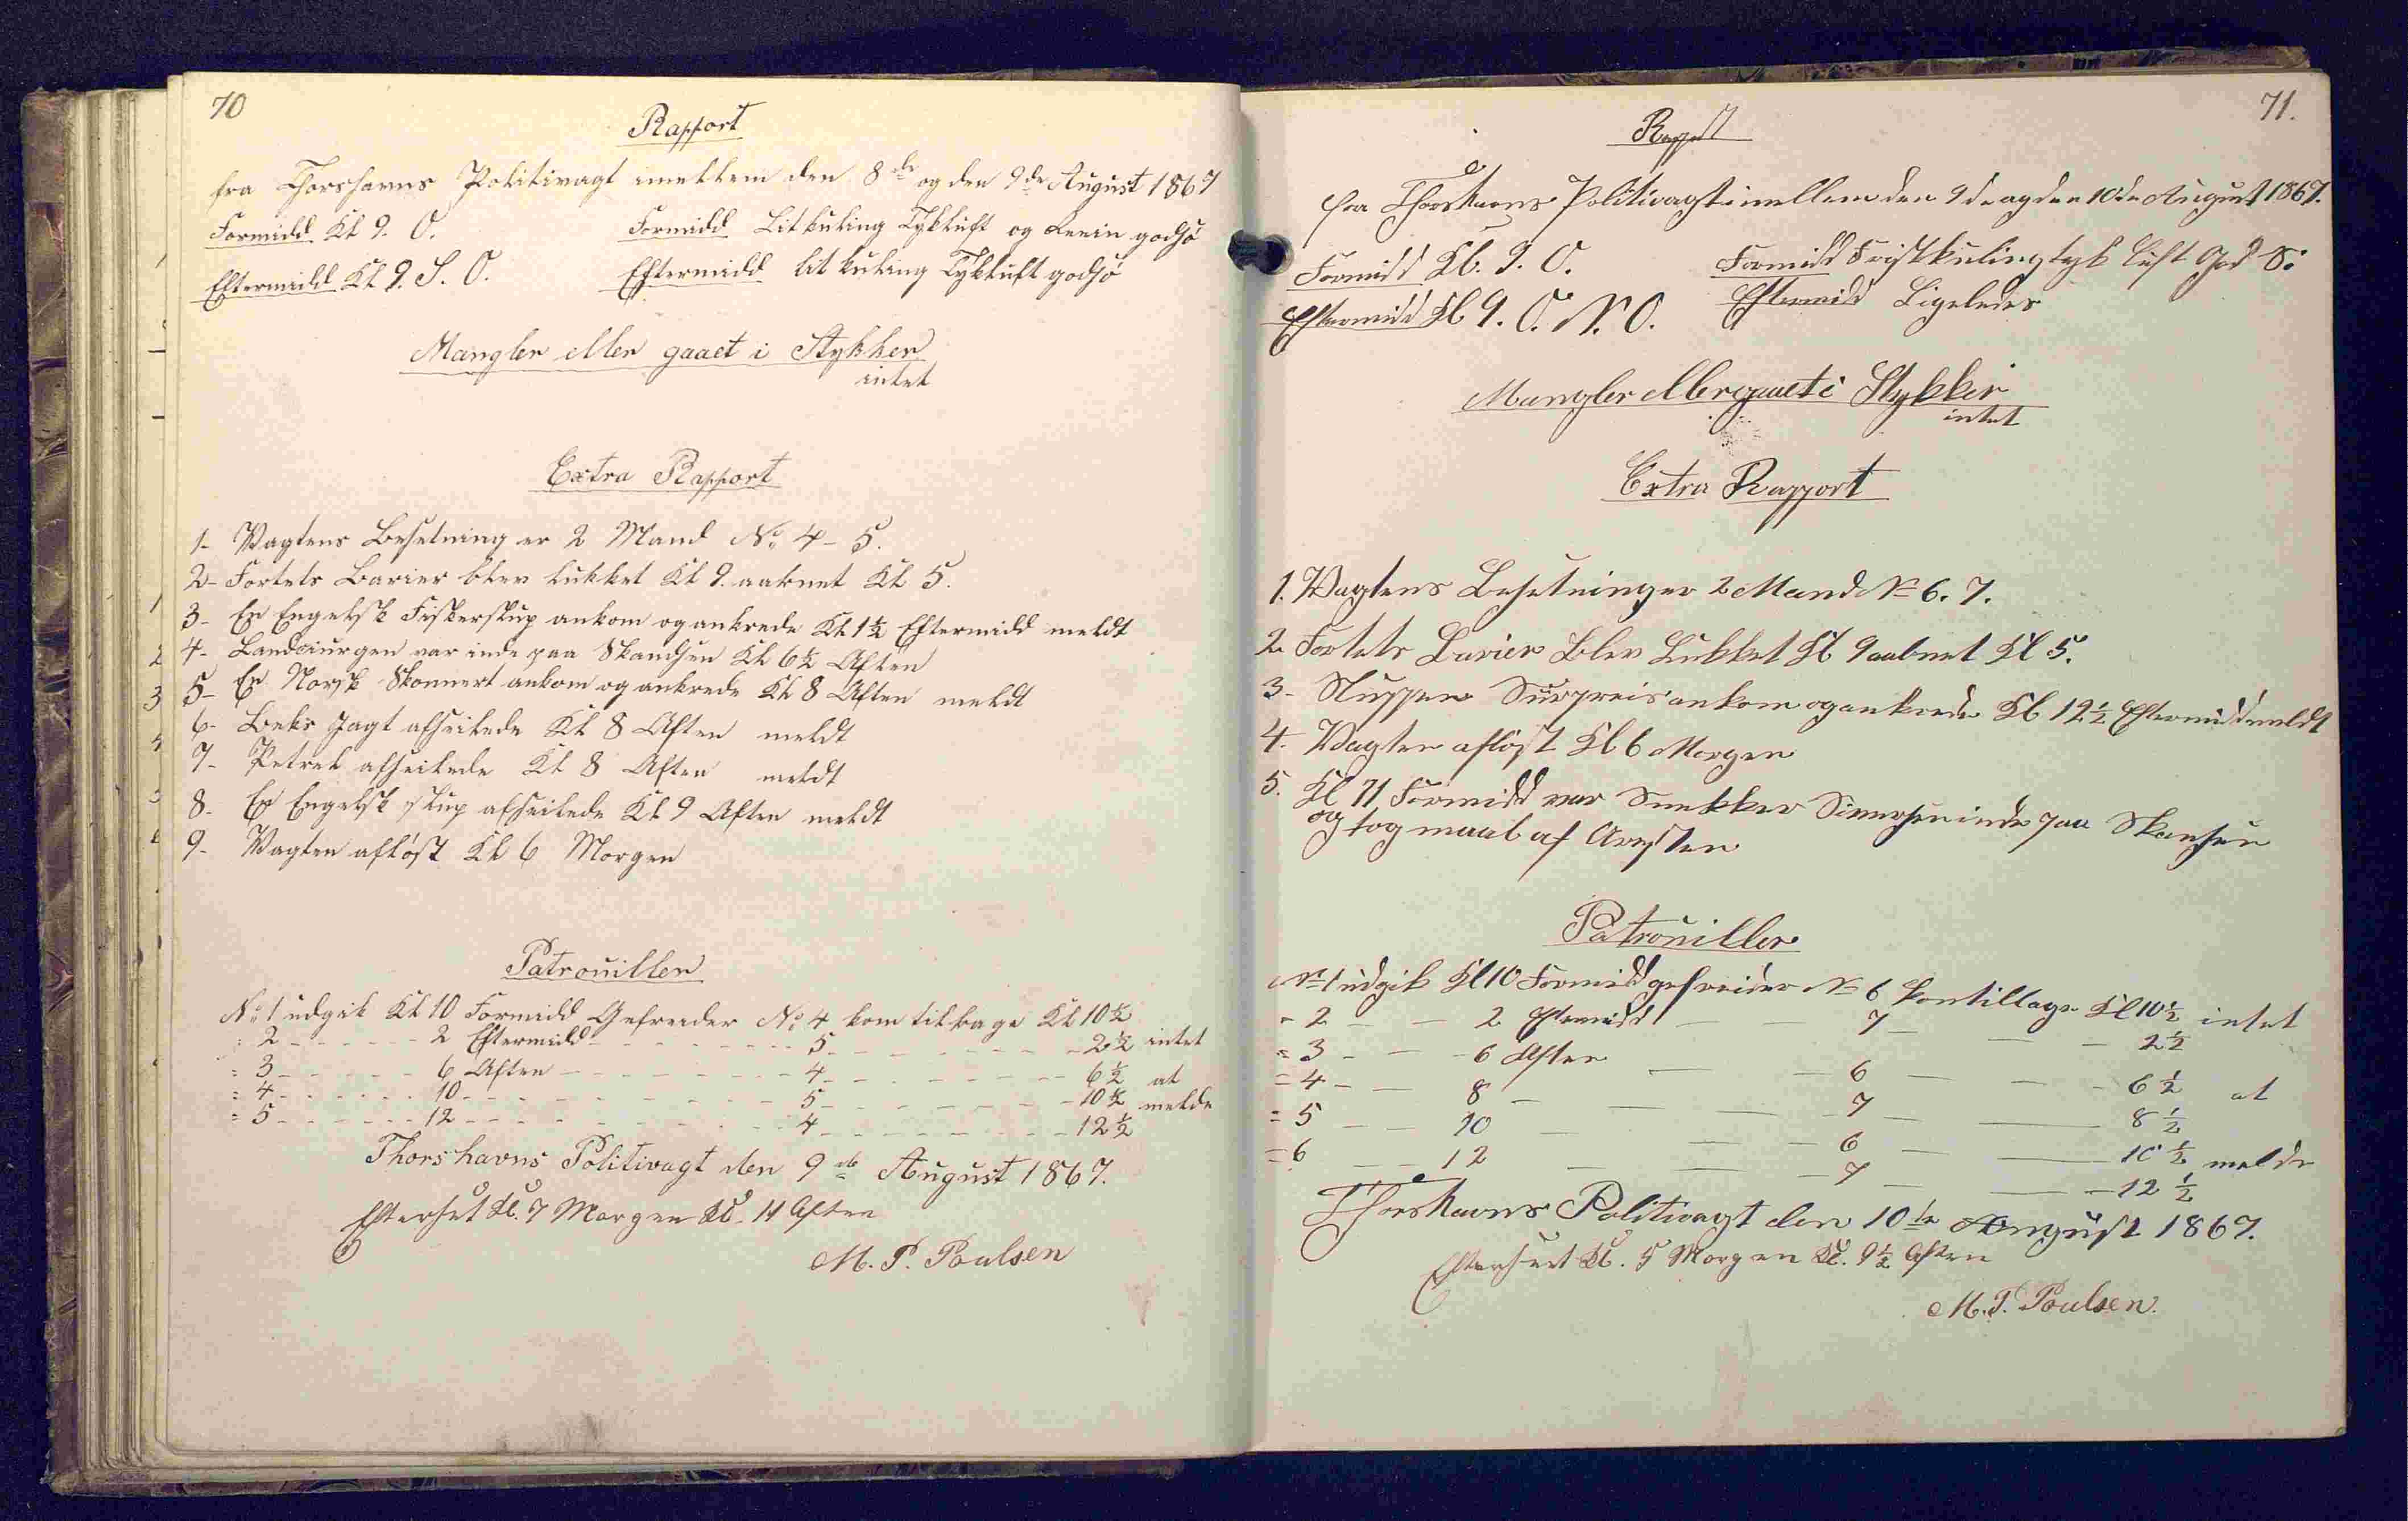 70
Rapport
fra Thorshavns Politivagt imellem den 8de og den 9de August 1867
Formidd Kl 9. O. Formidd Litkuling Tykluft og Reein godsø
Eftermidd Kl 9. S. O. Eftermidd lit kuling Tykluft godsø
Mangler eller gaaet i Stykker
intet
Extra Rapport
1- Vagtens Besetning er 2 Mand No 4-5.
2- Fortets Barier blev lukket Kl 9. aaknet Kl 5.
3- En Engelsk Fiskerslup ankom og ankrede Kl 1½ Eftermidd meldt
4- Landciurgen var inde paa Skandsen Kl 6½ Aften
5- En Norsk Skonnert ankom og ankrede Kl 8 Aften meldt
6- Beks Jagt afseilede Kl 8 Aften meldt
7- Petrel afseilede Kl 8 Aften meldt
8- En Engelsk slup afseilede Kl 9 Aften meldt
9- Vagten afløst Kl 6 Morgen
Patrouiller
No 1 udgik Kl 10 Formidd Gefreider No 4 kom tilbage Kl 10½
= 2 - - - 2 Eftermidd - - - 5 - - - 2½ intet
= 3 - - - 6 Aften - - - 4 - - - 6½ at
= 4 - - - 10 - - - 5 - - - 10½ melde
= 5 - - - 12 - - - 4 - - - 12½
Thorshavns Politivagt den 9de August 1867.
Efterset Kl. 7 Morgen Kl. 11 Aften
M. P. Poulsen
71.
Rapport
fra Thorshavns Politivagt imellem den 9de og den 10de August 1867.
Formidd Kl. 9. O. Formidd Friskkuling tyk luft God Sø
Eftermidd Kl 9. O. N. O. Eftermidd Ligeledes
Mangler eller gaaet i Stykker
intet
Extra Rapport
1. Vagtens Besetning er 2 Mand No 6. 7.
2. Fortets Barier Blev Lukket Kl 9 aabnet Kl 5.
3- Sluppen Surpreis ankom og ankrede Kl 12½ Eftermidd meldt
4. Vagten afløst Kl 6 Morgen
5. Kl 11 Formidd var Snekker Simonsen inde paa Skansen
og tog maal af Aresten
Patrouiller
No 1 udgik Kl 10 Formidd gefreider No 6 kom tilbage Kl 10½ intet
= 2 - - 2 Eftermidd - - 7 - - 2½
= 3 - - 6 Aften - - 6 - - 6½ at
= 4 - - 8 - - 7 - - 8½
= 5 - - 10 - - 6 - - 10½ melde
= 6 - - 12 - - 7 - - 12½
Thorshavns Politivagt den 10de August 1867.
Efterseet Kl. 5 Morgen Kl. 9½ Aften
M. P. Poulsen.